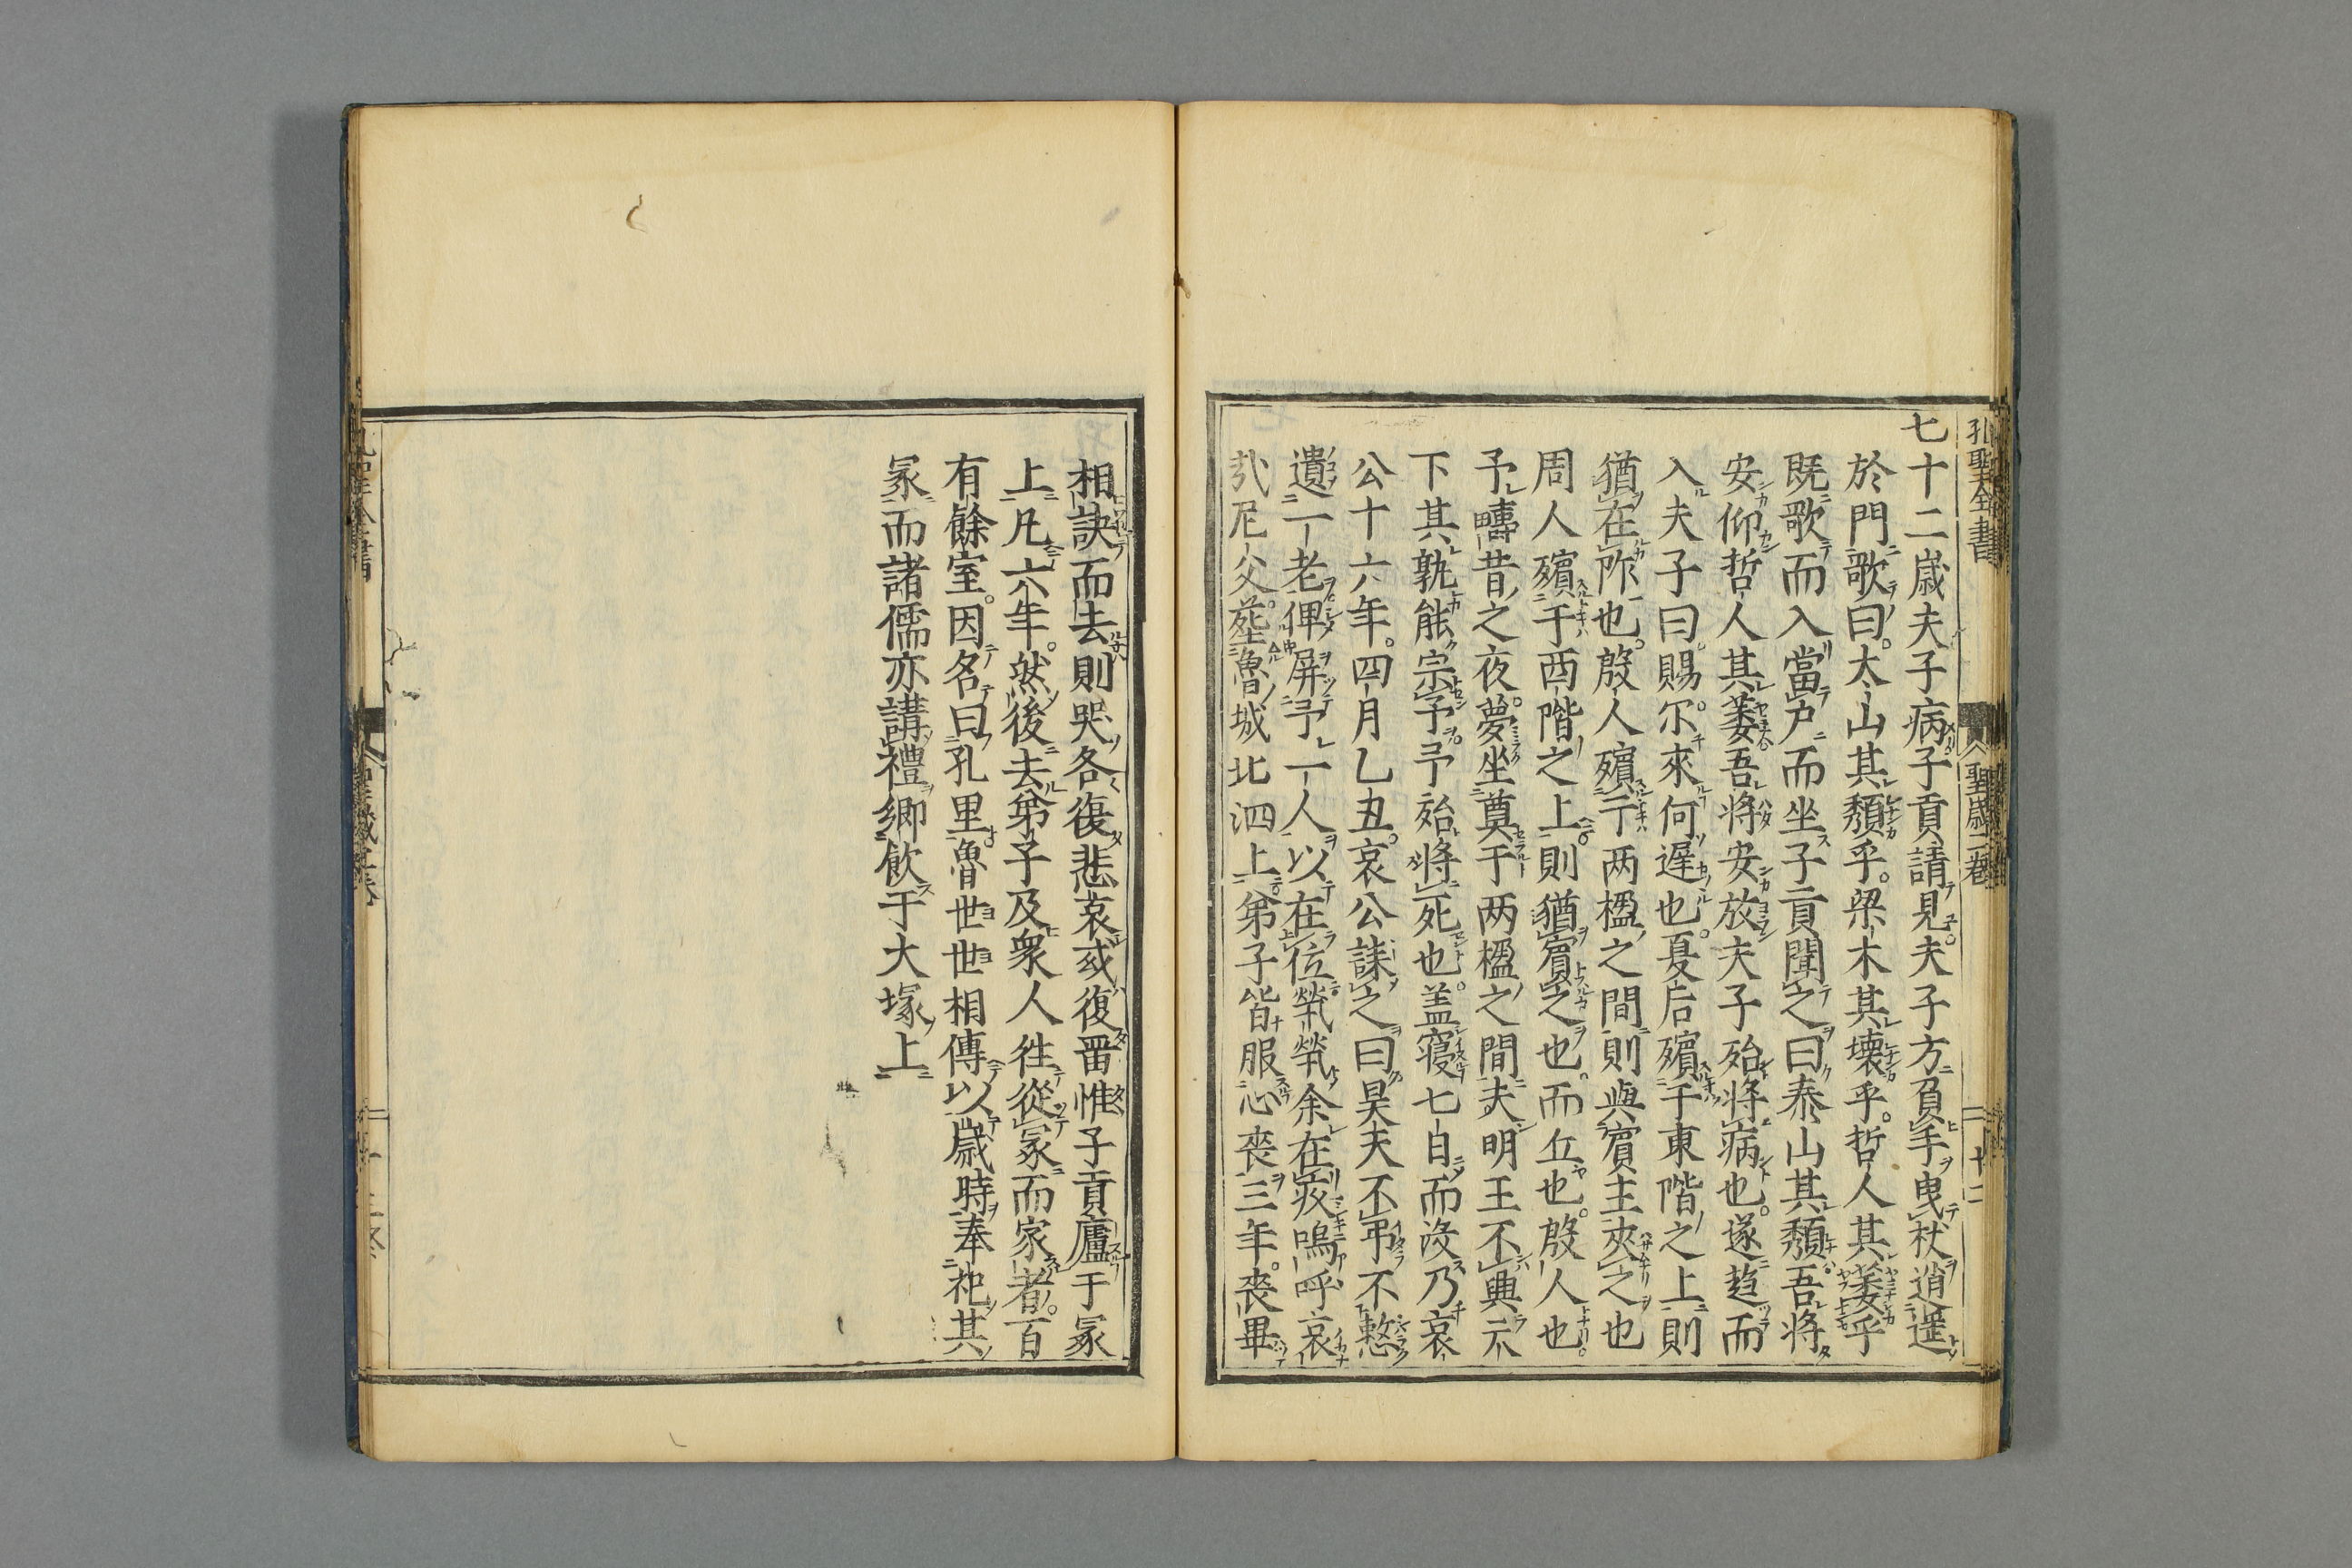 孔聖全書
聖歳二卷
二十二
七十二歳夫子病子貢請見夫子方負手曳杖逍遥
於門歌曰太山其頽乎梁木其壊乎哲人其萎乎
既歌而入當戸而坐子貢聞之曰泰山其頽吾將
安仰哲人其萎吾將安放夫子殆將病也遂趍而
入夫子曰賜尓來何遲也夏后殯于東階之上則
猶在阼也殷人殯于两楹之間則與賓主夾之也
周人殯于西階之上則猶賓之也而丘也殷人也
予疇昔之夜夢坐奠于两楹之間夫明王不興天
下其孰能宗予予殆將死也盖寢七日而没乃哀
公十六年四月乙丑哀公誄之曰昊天不弔不憖
遺一老俾屏予一人以在位煢煢余在疚嗚呼哀
㢤尼父葬魯城北泗上弟子皆服心喪三年喪畢
相訣而去則哭各復悲哀或復畱惟子貢廬于冢
上凡六年然後去弟子及衆人往從冢而家者百
有餘室因名曰孔里魯世世相傳以歳時奉祀其
冢而諸儒亦講禮鄉飲于大塚上